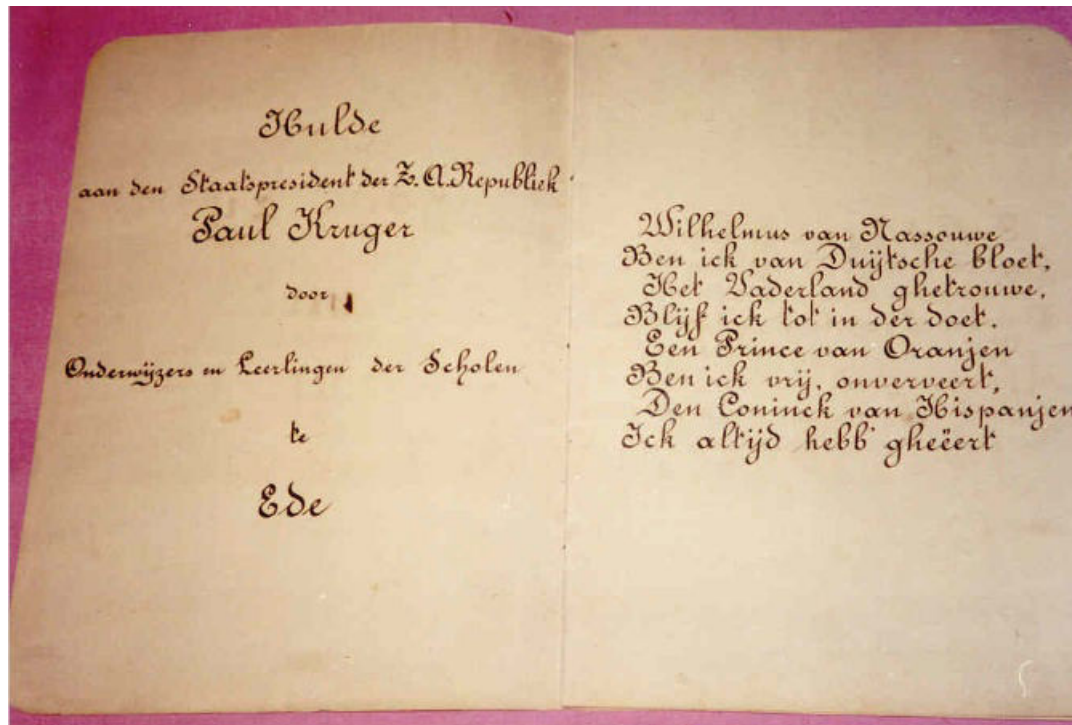 Hulde
aan den Staatspresident der Z. A. Republiek
Paul Kruger
door
Onderwijzers en Leerlingen der Scholen
te
Ede
Wilhelmus van Nassouwe
Ben ick van Duijtsche bloet,
Het Vaderland ghetrouwe,
Blijf ick tot in der doet.
Een Prince van Oranjen
Ben ick vrij, onverveert,
Den Coninck van Hispanjen
Ick altijd hebb' gheëert